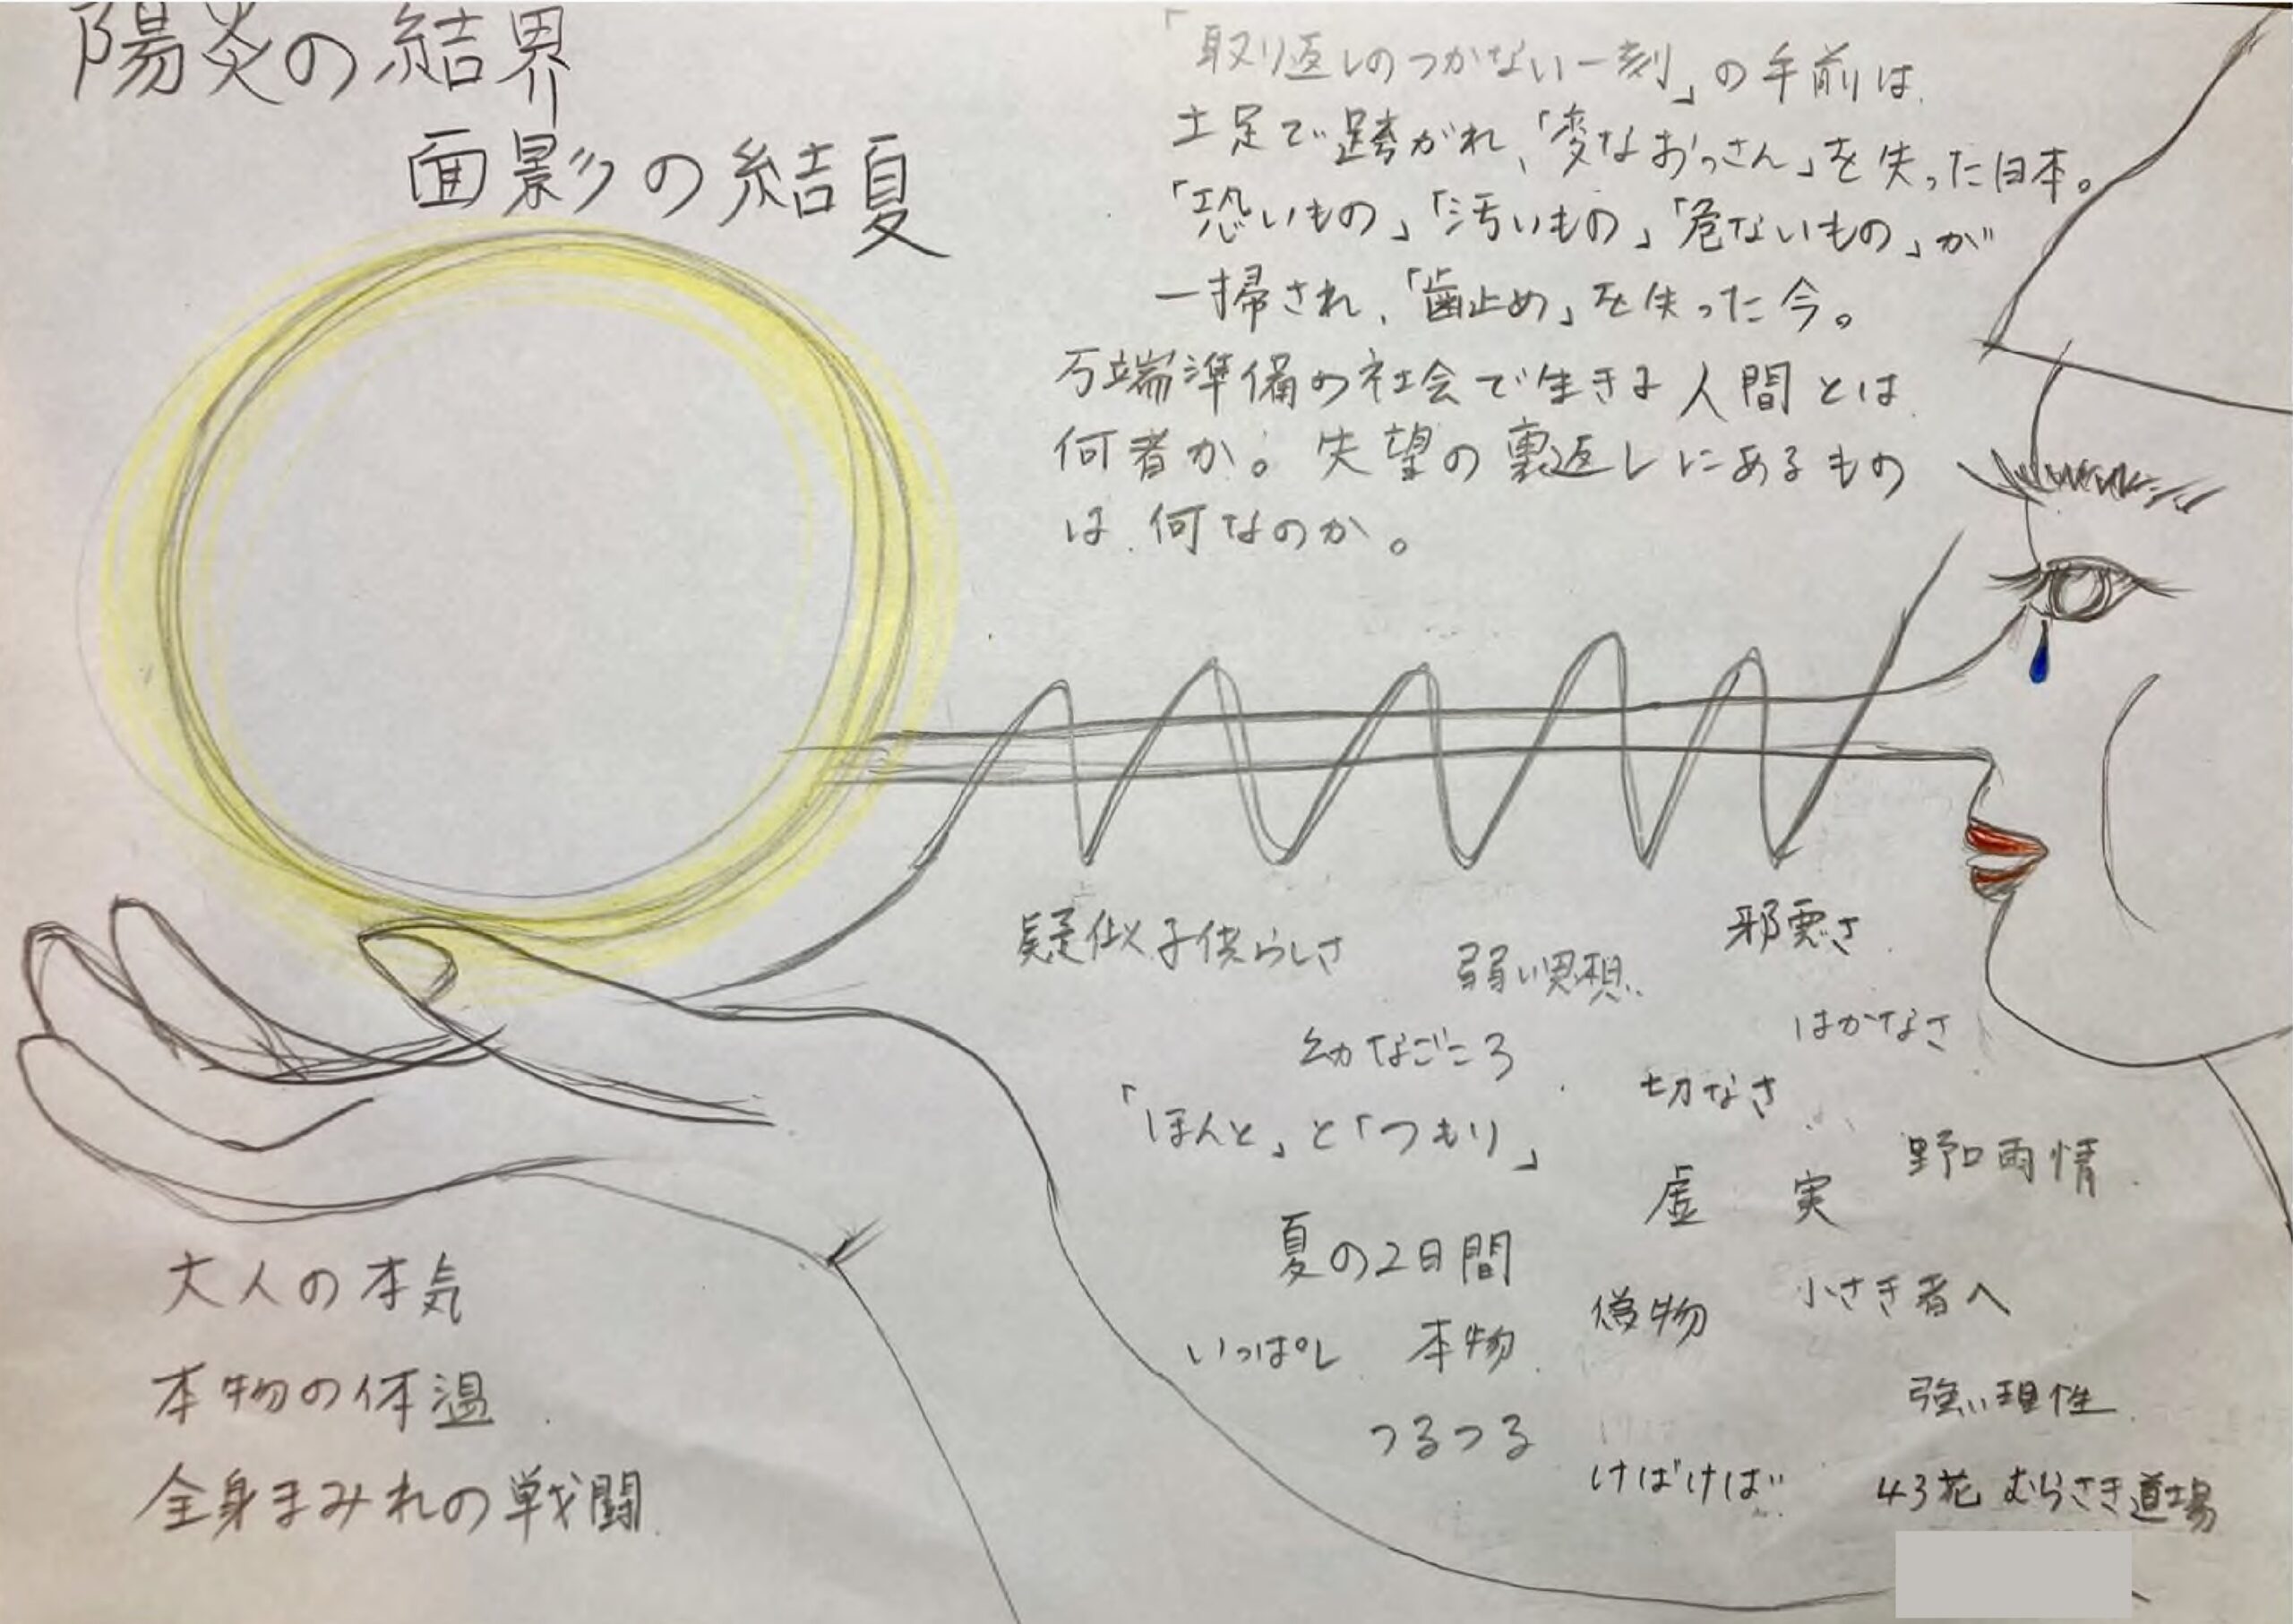 陽炎の結界
面影の結夏
「取り返しのつかない一刻」の手前は
土足で跨がれ、「変なおっさん」を失った日本。
「恐いもの」「汚いもの」「危ないもの」が
一掃され、「歯止め」を失った今。
万端準備の社会で生きる人間とは
何者か。失望の裏返しにあるもの
は何なのか。
疑似子供らしさ
弱い思想
邪悪さ
はかなさ
幼なごころ
切なさ
「ほんと」と「つもり」
野口雨情
虚 実
夏の2日間
偽物
小さき者へ
いっぱし 本物
強い理性
つるつる
けばけば
43花 むらさき道場
大人の本気
本物の体温
全身まみれの戦闘